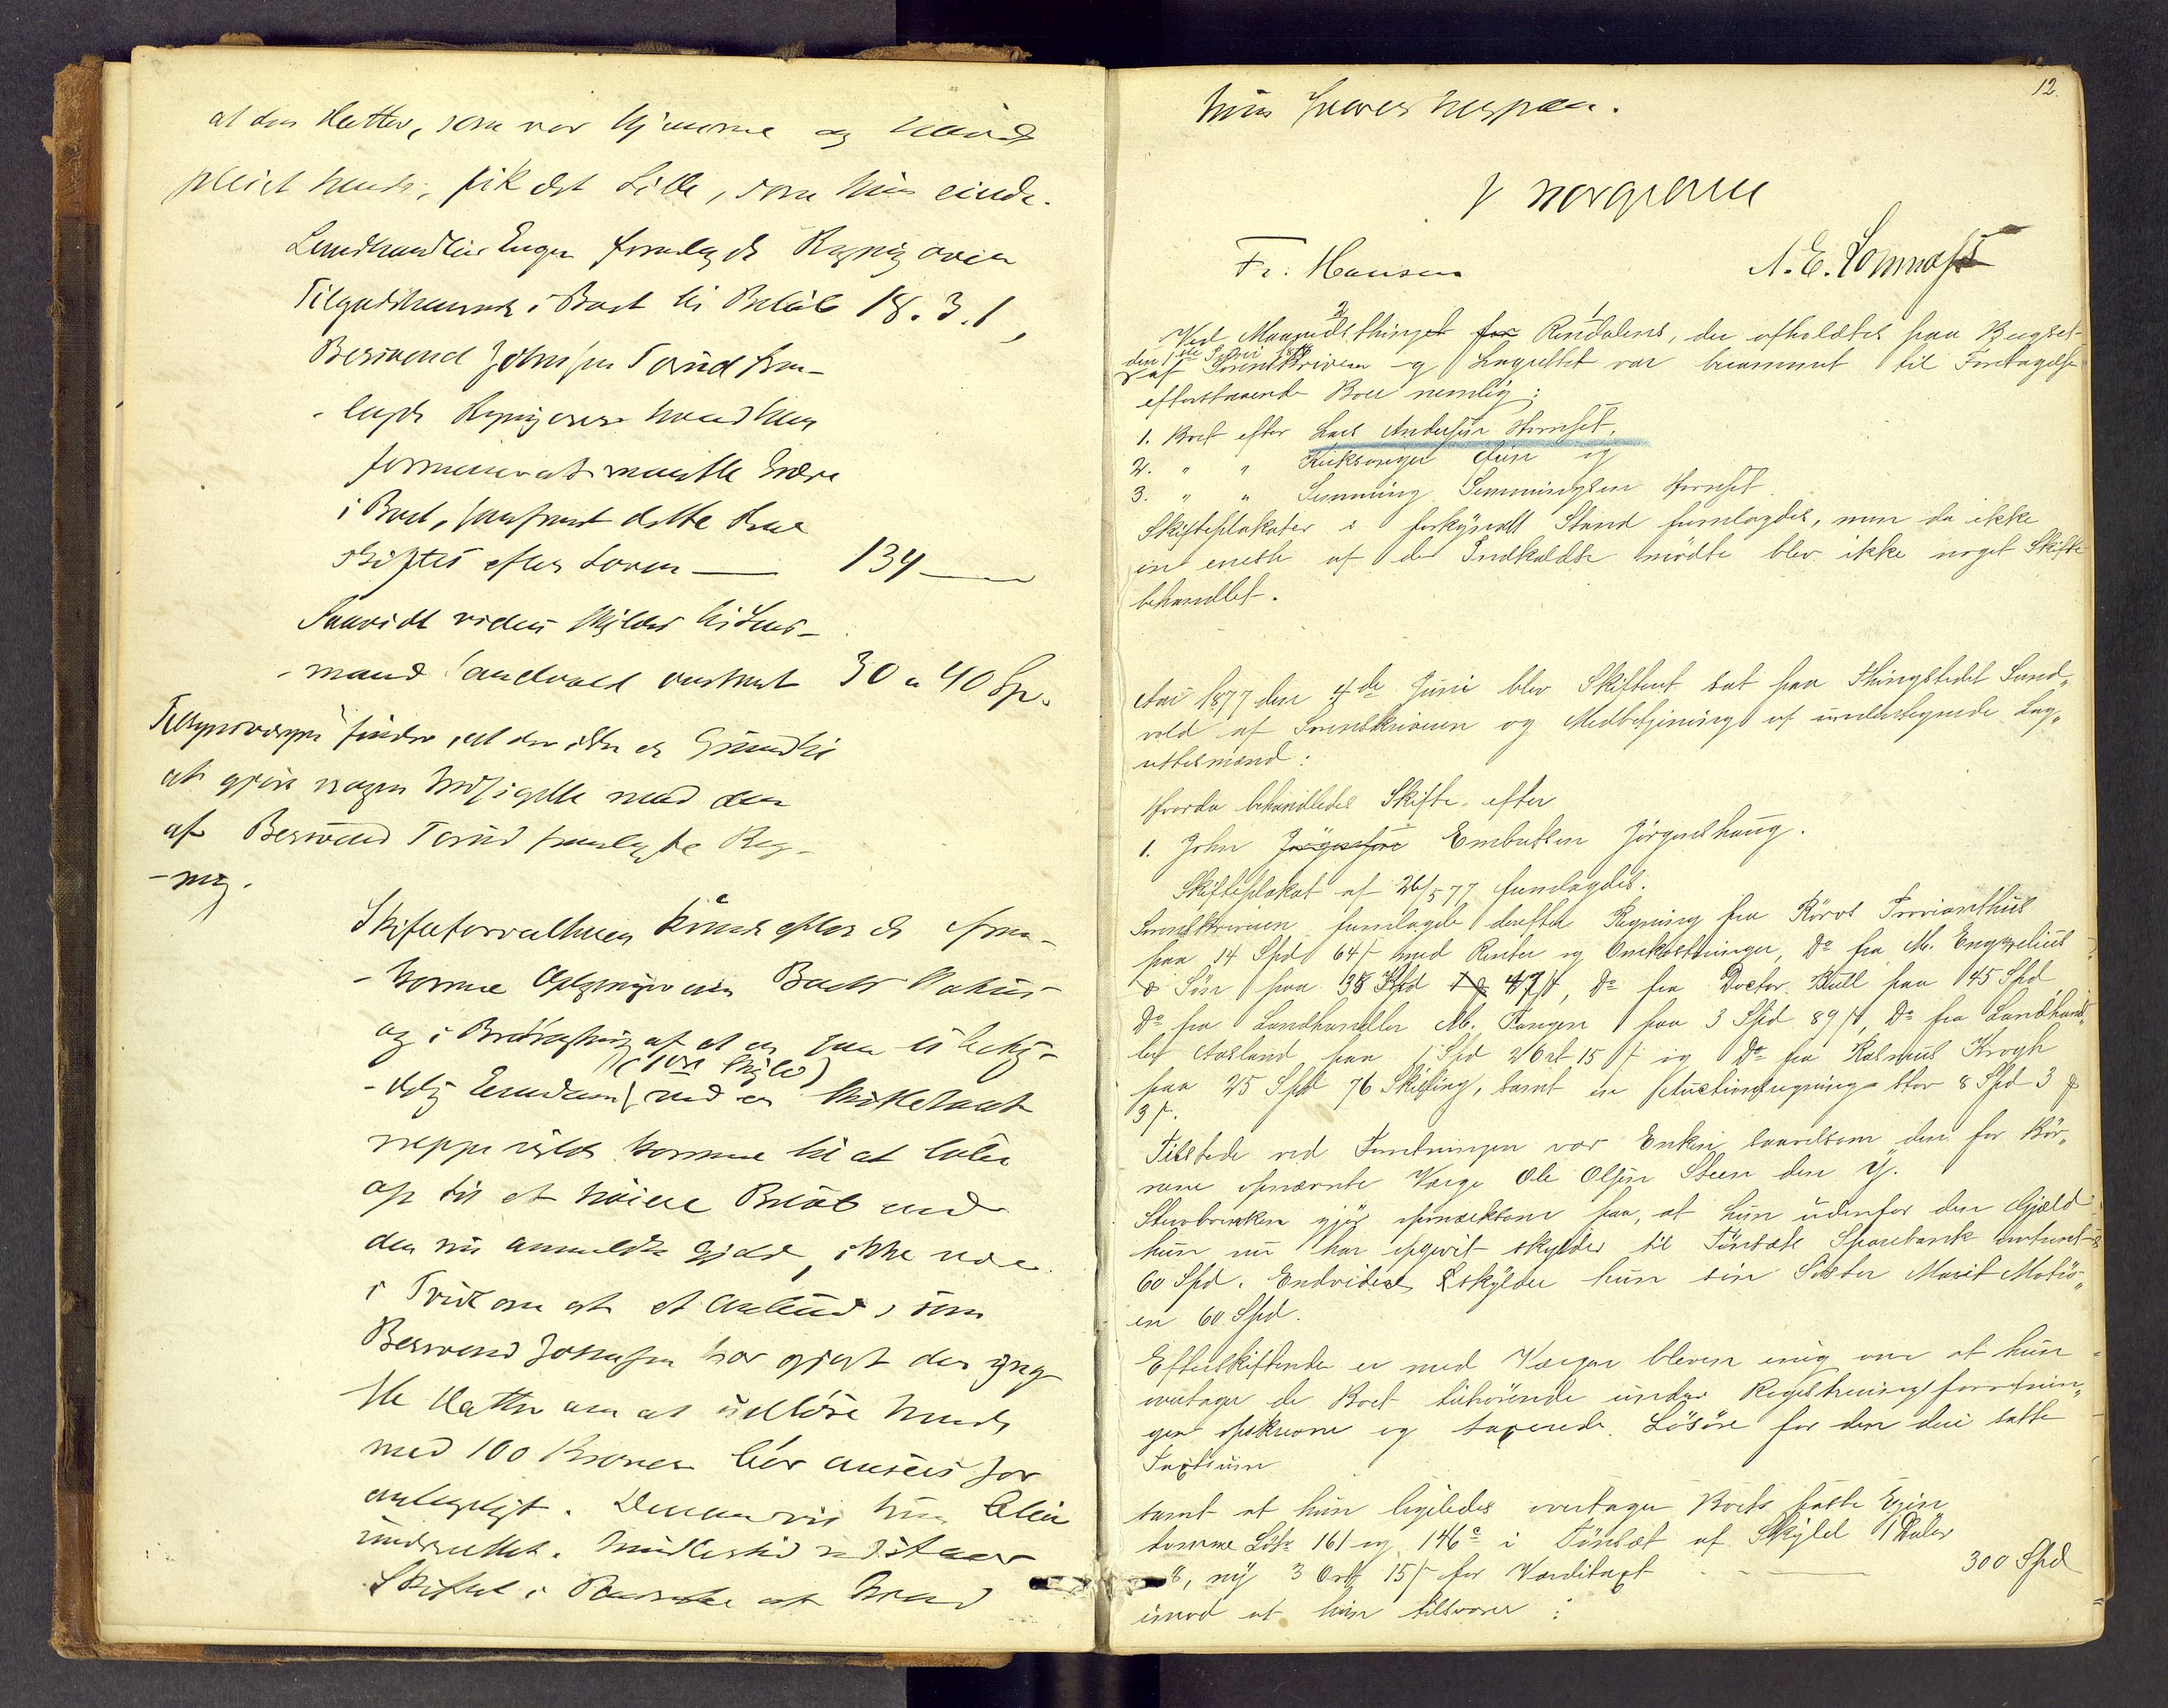 at den Datter, som var hjemme og havde
pleiet hende, fik det Lille, som hun eiede.
Landhandler Engen fremlagde Regning over
Tilgodehavende i Boet til Beløb 18.3.1,
Berivend Johnsen Tørud frem-
-lagde Regning over hvad han
formener at maatte have
i Boet, saafremt dette skal
skiftes efter Loven — 134 —
Saavidt vides skyldes til Lens-
-mand Sandvold omtrent 30 a 40 Sp.
finder, at der ikke er Grund til
at gjøre nogen Indsigelse mod den
af Berivend Tørud fremlagte Reg-
-ning.
Skifteforvalteren kunde efter de frem-
-komne Oplysninger om Boets Status
og i Betragtning af at en saa ubety-
-delig Eiendom (10 Skyld) ved en
neppe vilde komme til at løbe
op til et høiere Beløb end
den nu anmeldte Gjæld, ikke være
i Tvivl om at et Anbud, som
Berivend Johnsen har gjort den yng-
ste Datter om at udløse hende
med 100 Kroner bør ansees for
antageligt. Derom vil hun blive
underrettet. Imidlertid udstaar
Skiftet i at hvad
12
hun svares herpaa.
J Norgrenn
Fr. Hansen A. E. Tomnæss
Ved Maanedsthinget for Rendalens, der afholdtes paa Bugset
den 1ste Juni 1877
af Sorenskriveren og Lagrettet var berammet til Foretagelse
efterstaaende Boer nemlig:
1. Boet efter Lars Andersen Hornset,
2. " " og
3. " " Simming Simmingsen Hornset.
Skifteplakater i forkyndt Stand fremlagdes, men da ikke
en eneste af de Indkaldte mødte blev ikke noget Skifte
behandlet.
Aar 1877 den 4de Juni blev Skifteret sat paa Thingstedet Sand„
vold af Sorenskriveren og Medbetjening af undertegnede Lag„
rettesmænd:
Hvorda behandledes Skifte efter
1. John Jørgensen Embretsen Jørgenshaug.
Skifteplakat af 26/5 77 fremlagdes.
Sorenskriveren fremlagde derefter Regning fra Röros Provianthus
paa 14 Spd 64 ß med Renter og Omkostninger, Do fra M. Engzelius
& Søn paa 38 Spd 47 ß, Do fra Doctor Bull paa 45 Spd
Do fra Landhandler M. Tangen paa 3 Spd 89 ß, Do fra Landhand„
ler Aasland paa 1 Spd 2 Ort 15 ß og Do fra Rasmus Krogh
paa 25 Spd 76 Skilling, samt en Auctionsregning stor 8 Spd 3
3 ß.
Tilstede ved Forretningen var Enken saavelsom den for Bör„
nene opnævnte Værge Ole Olsen Steen den y.
Stervboenken gjør opmærksom paa, at hun udenfor den Gjæld
hun nu har opgivet skylder til Tönsæts Sparebank omtrent
60 Spd. Endvidere skylder hun sin Søster Marit Motrö-
en 60 Spd.
Efterskiftende er med Værgen bleven enig om at hun
overtager de Boet tilhørende under Registreringsforretnin„
gen opskrevne og taxerede Løsøre for den deri satte
Taxtsum
samt at hun ligeledes overtager Boets faste Eien
domme Löbe 161 og 146 c i Tönsæt af Skyld 1 Daler
8, ny 3 Ort 15 ß for Værditaxt - - — 300 Spd
imod at hun tilsvarer: